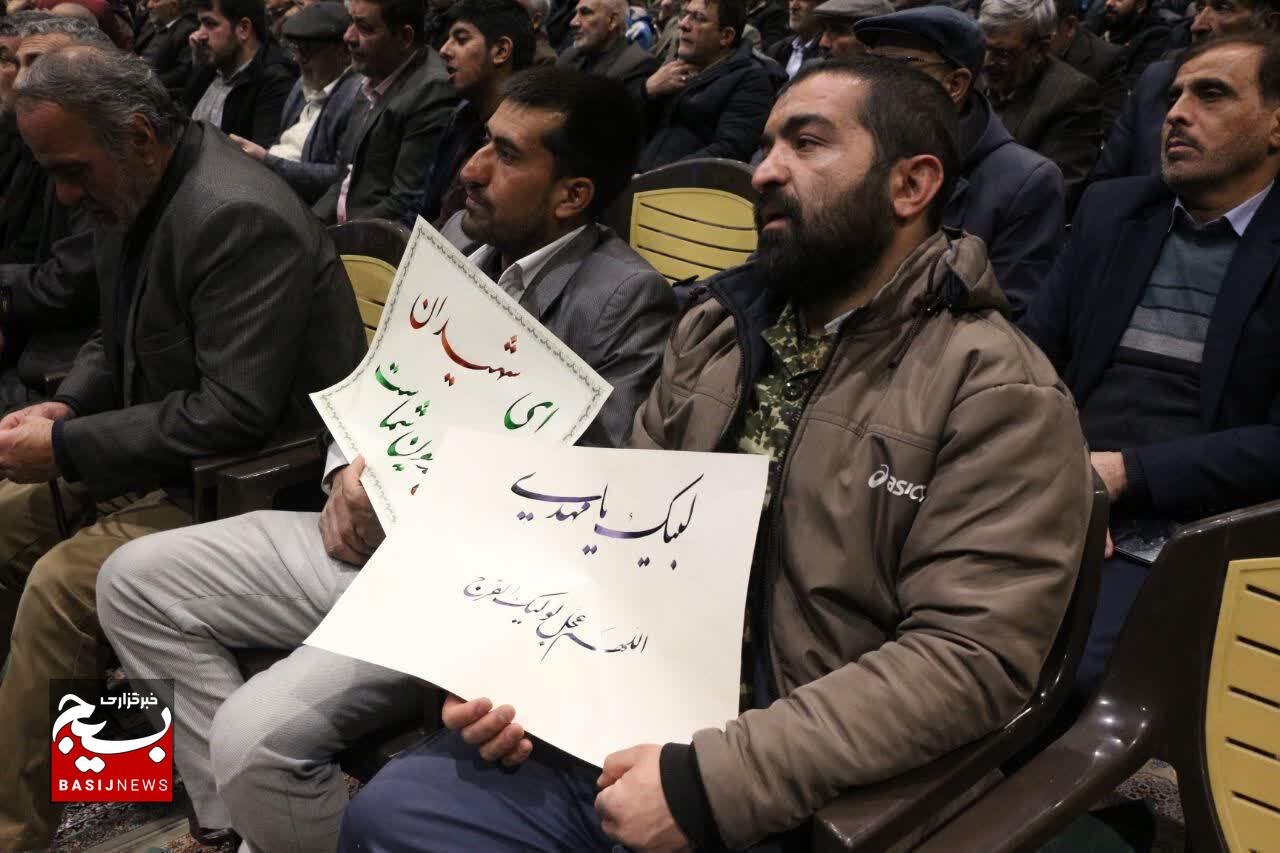 ای شهیدان
مدیون شماست
لبیک یا مهدی
اللهم عجل لولیک الفرج
asics
خبرگزاری
بسیج
BASIJNEWS